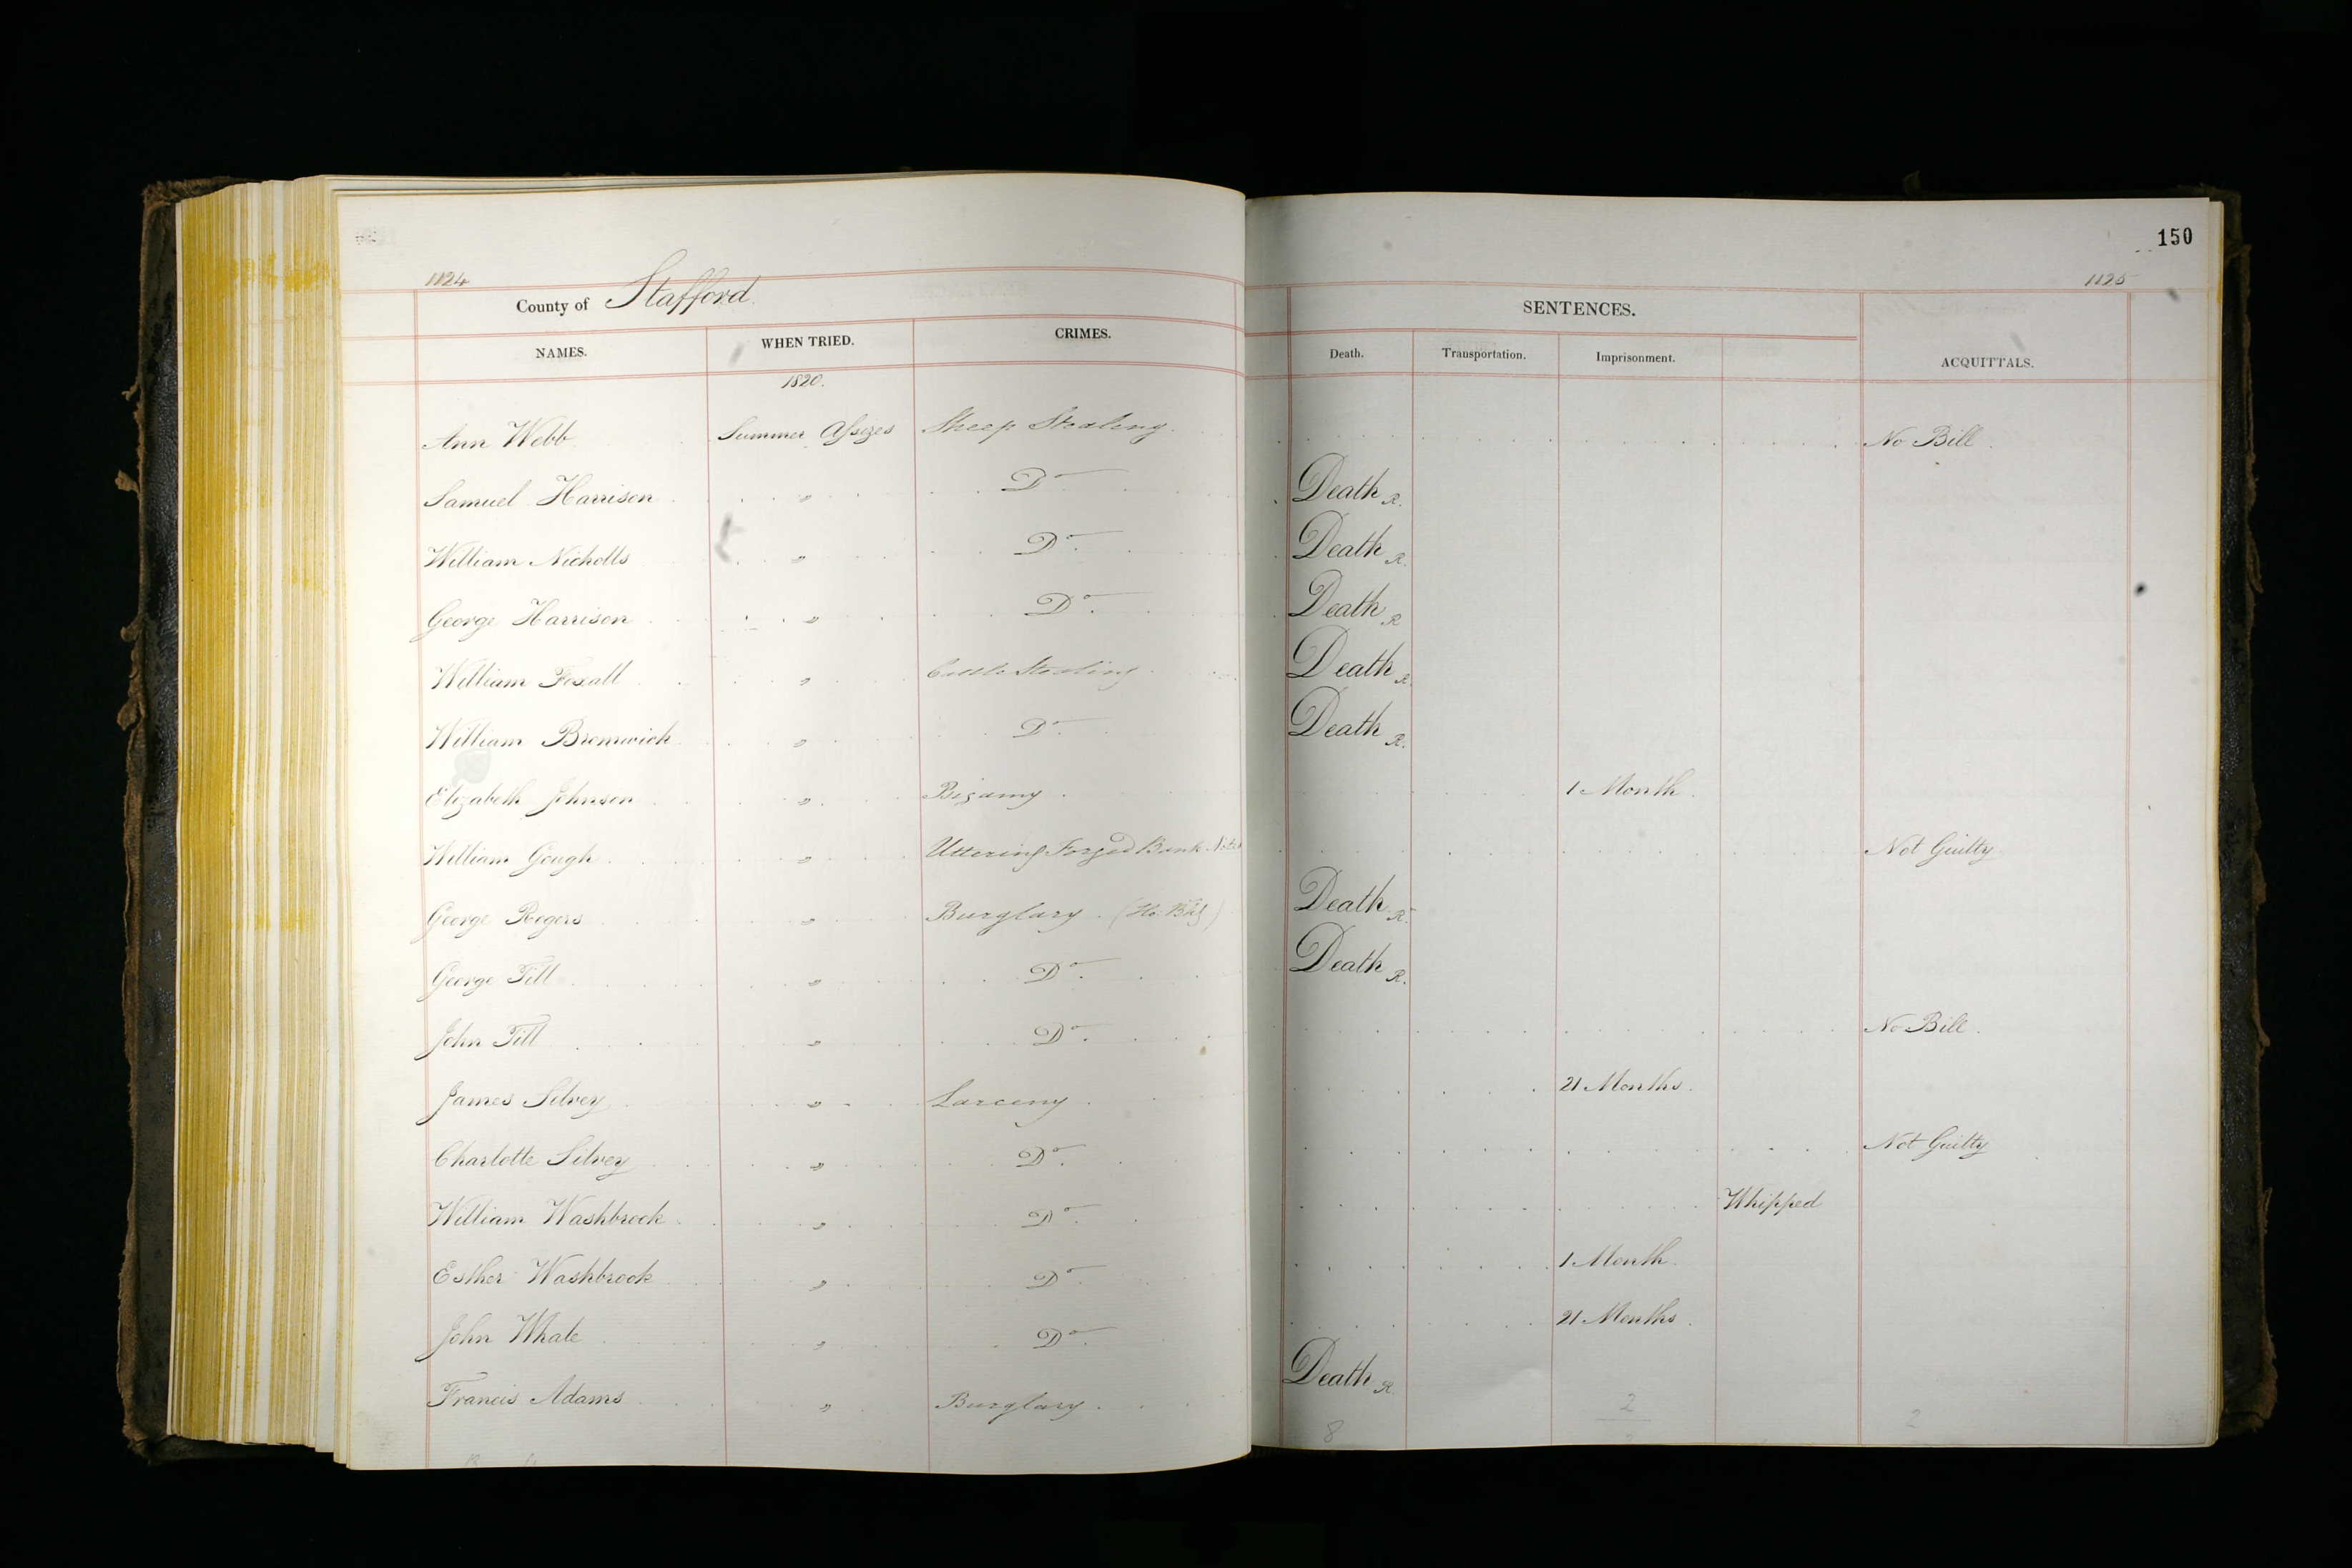 150
1124 1125
County of Stafford. SENTENCES.
NAMES. WHEN TRIED. CRIMES. Death. Transportation. Imprisonment. ACQUITTALS.
1820.
Ann Webb Summer Assizes Sheep Stealing. No Bill.
Samuel Harrison " Do. Death R.
William Nicholls " Do. Death R.
George Harrison " Do. Death R
William Foxall " Cattle Stealing. Death R.
William Bromwich " Do. Death R.
Elizabeth Johnson " Bigamy. 1 Month.
William Gough " Uttering Forged Bank Notes Not Guilty
George Rogers " Burglary. Death R.
George Till " Do. Death R.
John Till " Do. No Bill.
James Silvey " Larceny. 21 Months.
Charlotte Silvey " Do. Not Guilty
William Washbrook " Do. Whipped
Esther Washbrook " Do. 1 Month.
John Whale " Do. 21 Months.
Francis Adams " Burglary. Death R.
8 2 2